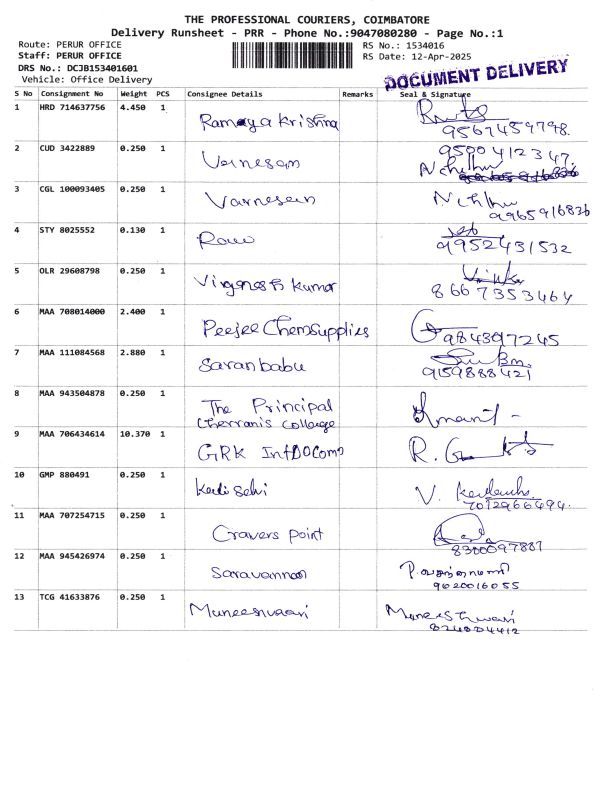 THE PROFESSIONAL COURIERS, COIMBATORE
Delivery Runsheet - PRR - Phone No.:9047080280 - Page No.:1
Route: PERUR OFFICE
RS No.: 1534016
Staff: PERUR OFFICE
RS Date: 12-Apr-2025
DRS No.: DCJB153401601
DOCUMENT DELIVERY
Vehicle: Office Delivery
S No Consignment No Weight PCS Consignee Details Remarks Seal & Signature
1 HRD 714637756 4.450 1 Ramaya Krishna
9567459798
2 CUD 3422889 0.250 1 Varnesan 9500412347
3 CGL 100093405 0.250 1 Varnesan
9965916836
4 STY 8025552 0.130 1
9952431532
5 OLR 29608798 0.250 1 Kumar
8667353464
6 MAA 708014000 2.400 1 Peejee Chemsupplies 984397245
7 MAA 111084568 2.880 1 Saranbabu
9159888421
8 MAA 943504878 0.250 1 The Principal
9 MAA 706434614 10.370 1 GRK R.
10 GMP 880491 0.250 1 V.
7012966494
11 MAA 707254715 0.250 1 Cravers point
8300097887
12 MAA 945426974 0.250 1 Saravannan
9020016055
13 TCG 41633876 0.250 1 Muneeshwari Muneeshwari